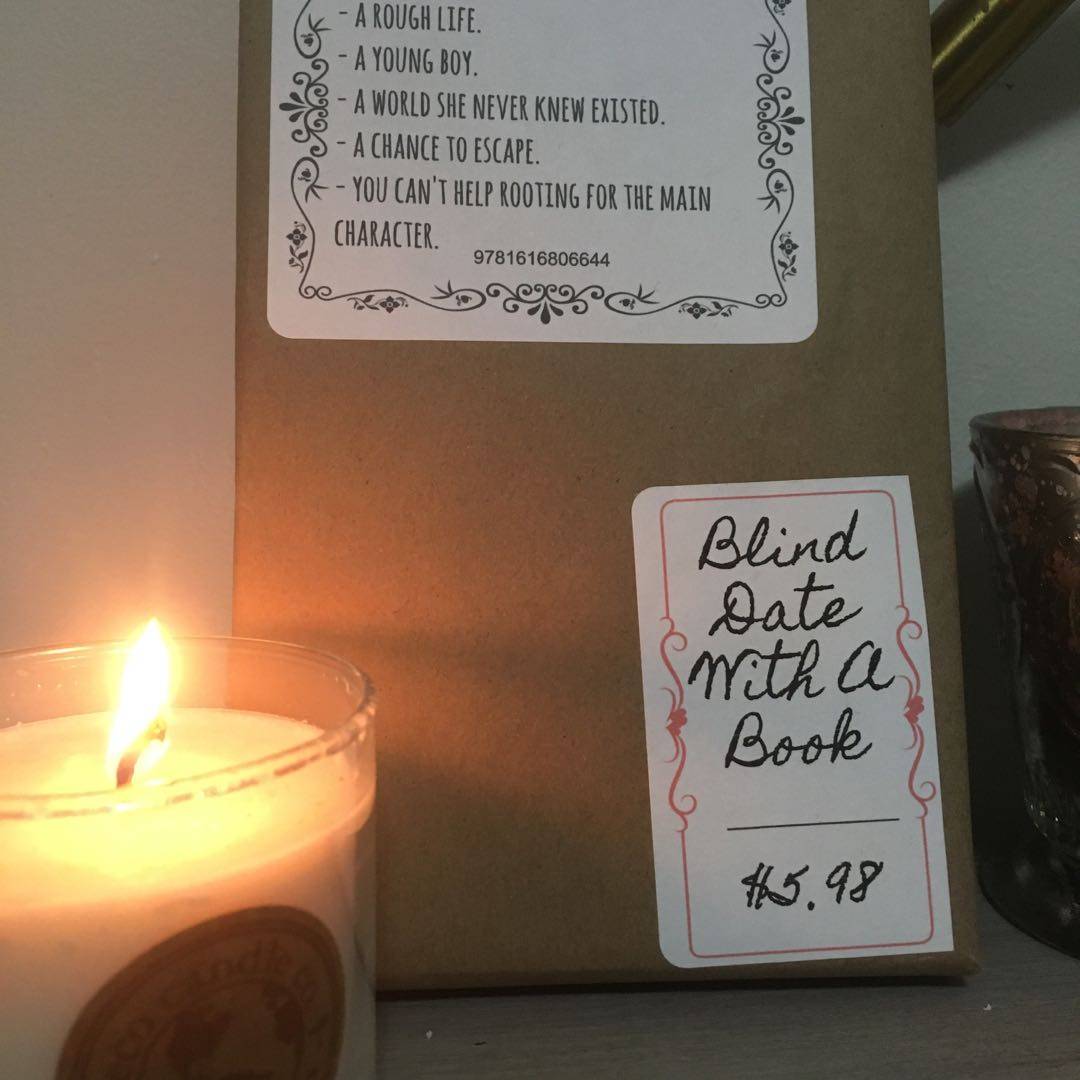 - A ROUGH LIFE.
- A YOUNG BOY.
- A WORLD SHE NEVER KNEW EXISTED.
- A CHANCE TO ESCAPE.
- YOU CAN'T HELP ROOTING FOR THE MAIN
CHARACTER.
9781616806644
Blind
Date
With A
Book
$5.98
eco candle co.